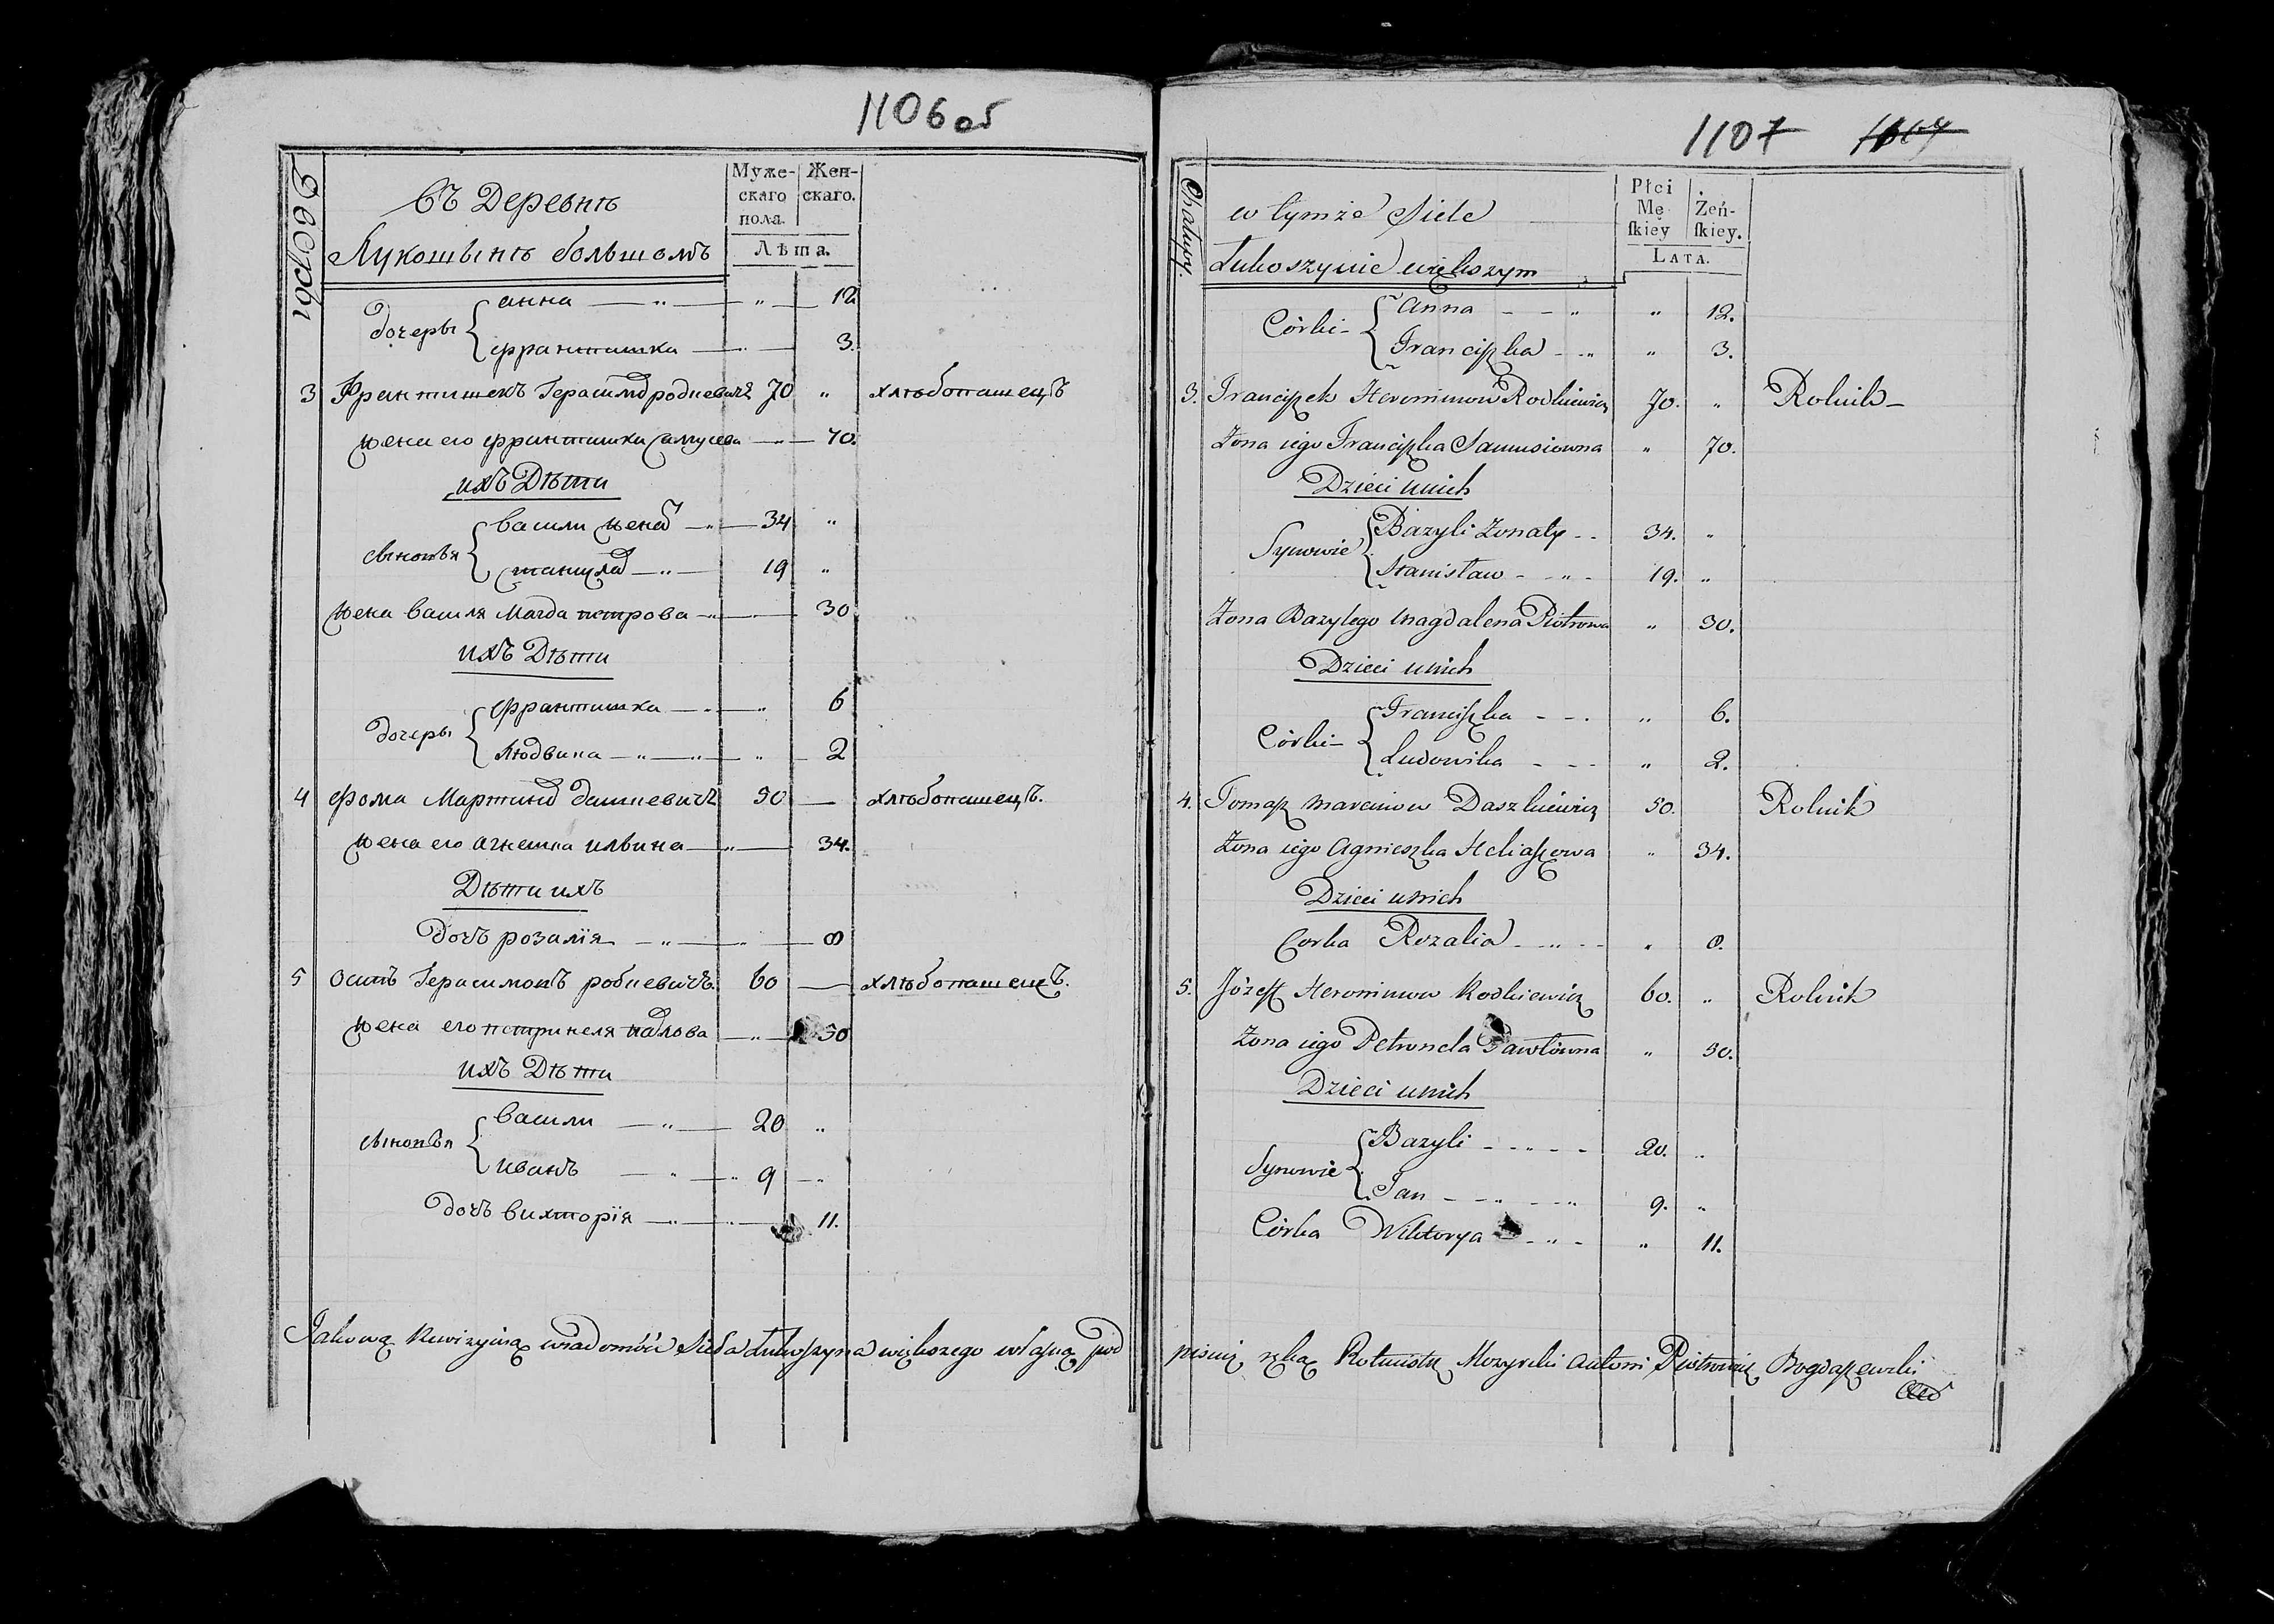 1106 об
Дворы
Въ Деревнѣ
Лукошынѣ большомъ
Муже-
скаго
пола.
Жен-
скаго.
Лѣта.
дочеры
анна — „ — „ — 12
францишка — 3.
3 Францишекъ Герасимов родкевичъ 70 „ хлѣбопашецъ
жена его францишка самусева — 70.
ихъ Дѣти
сыновья
васили женат — „ — 34 „
станислав — „ — 19 „
жена василя Магда петрова — „ — 30
ихъ Дѣти
дочеры
францишка — „ — „ 6
людвика — „ — „ — 2
4 фома Мартинов дашкевичъ 50 — хлѣбопашецъ.
жена его агнешка ильина — „ — 34.
Дѣти ихъ
дочъ розалїя — „ — „ — 8
5 осипъ Герасимовъ родкевичъ 60 — хлѣбопашецъ.
жена его петринеля павлова — „ — 50
ихъ Дѣти
сыновья
васили — „ — 20 „
иванъ — „ — „ 9 — „
дочъ вихторїя — „ — „ — 11.
Jakową Rewizyiną wiadomość Sieła Łukoszyna większego własną pod
1107 1107
Chałupy
w tymże Siele
Łukoszynie większym
Płci
Mę
skiey
Żeń-
skiey.
LATA.
Córki -
Anna - - „ „ 12.
Franciszka - „ „ 3.
3. Franciszek Heronimow Rodkiewicz 70. „ Rolnik -
Żona iego Franciszka Samusiowna „ 70.
Dzieci u nich
Synowie
Bazyli Żonaty - - 34. „
Stanisław - - „ - 19. „
Żona Bazylego Magdalena Piotrowa „ 30.
Dzieci u nich
Córki -
Franciszka - - - „ 6.
Ludowika - - - „ 2.
4. Tomasz Marcinow Daszkiewicz 50. Rolnik
Żona iego Agnieszka Heliaszowa „ 34.
Dzieci u nich
Corka Rozalia - „ - - „ 8.
5. Józeff Heronimow Rodkiewicz 60. „ Rolnik
Żona iego Petronela Pawłówna „ 50.
Dzieci u nich
Synowie
Bazyli - - „ - - 20. „
Jan - - „ - „ 9. „
Córka Wiktorya - „ - „ 11.
pisuię ręką Rotmistrz Mozyrski Antoni Piotrowicz Bogdaszewski